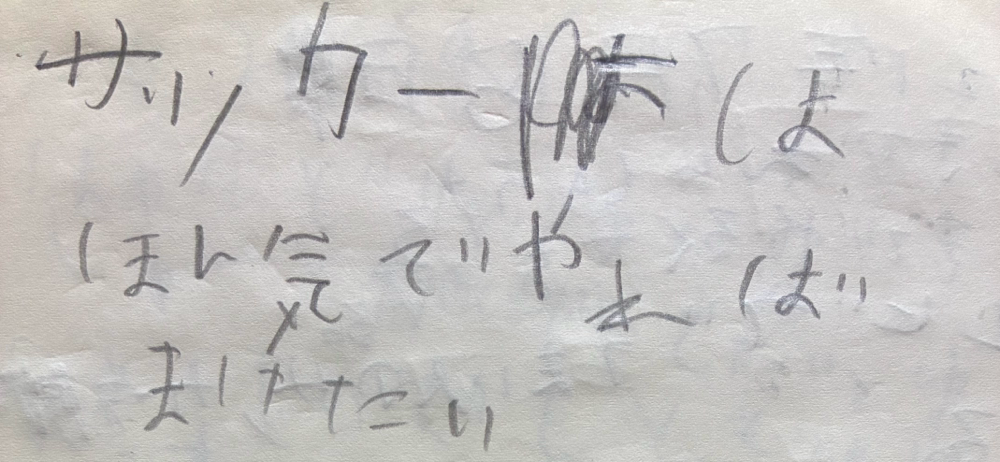 サッカーは
ほん気でやれば
まけたい